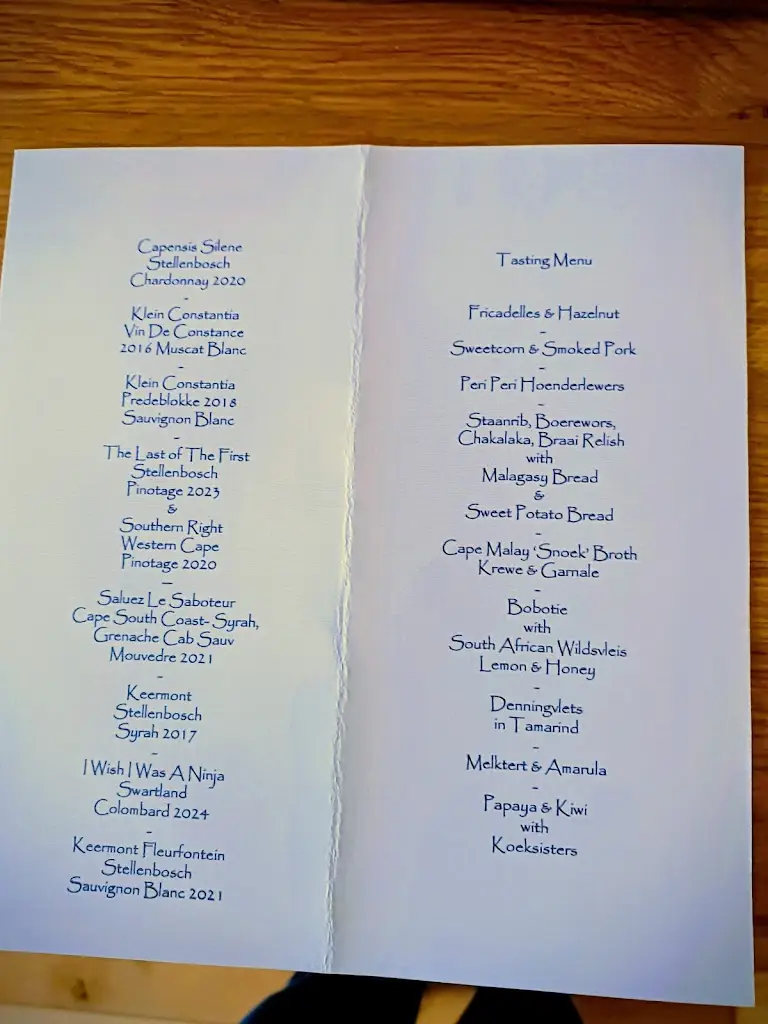 Capensis Silene
Stellenbosch
Chardonnay 2020
-
Klein Constantia
Vin De Constance
2016 Muscat Blanc
-
Klein Constantia
Predeblokke 2018
Sauvignon Blanc
-
The Last of The First
Stellenbosch
Pinotage 2023
&
Southern Right
Western Cape
Pinotage 2020
-
Saluez Le Saboteur
Cape South Coast- Syrah,
Grenache Cab Sauv
Mouvedre 2021
-
Keermont
Stellenbosch
Syrah 2017
-
I Wish I Was A Ninja
Swartland
Colombard 2024
-
Keermont Fleurfontein
Stellenbosch
Sauvignon Blanc 2021
Tasting Menu
Fricadelles & Hazelnut
-
Sweetcorn & Smoked Pork
-
Peri Peri Hoenderlewers
-
Staanrib, Boerewors,
Chakalaka, Braai Relish
with
Malagasy Bread
&
Sweet Potato Bread
-
Cape Malay ‘Snoek’ Broth
Krewe & Garnale
-
Bobotie
with
South African Wildsvleis
Lemon & Honey
-
Denningvlets
in Tamarind
-
Melktert & Amarula
-
Papaya & Kiwi
with
Koeksisters